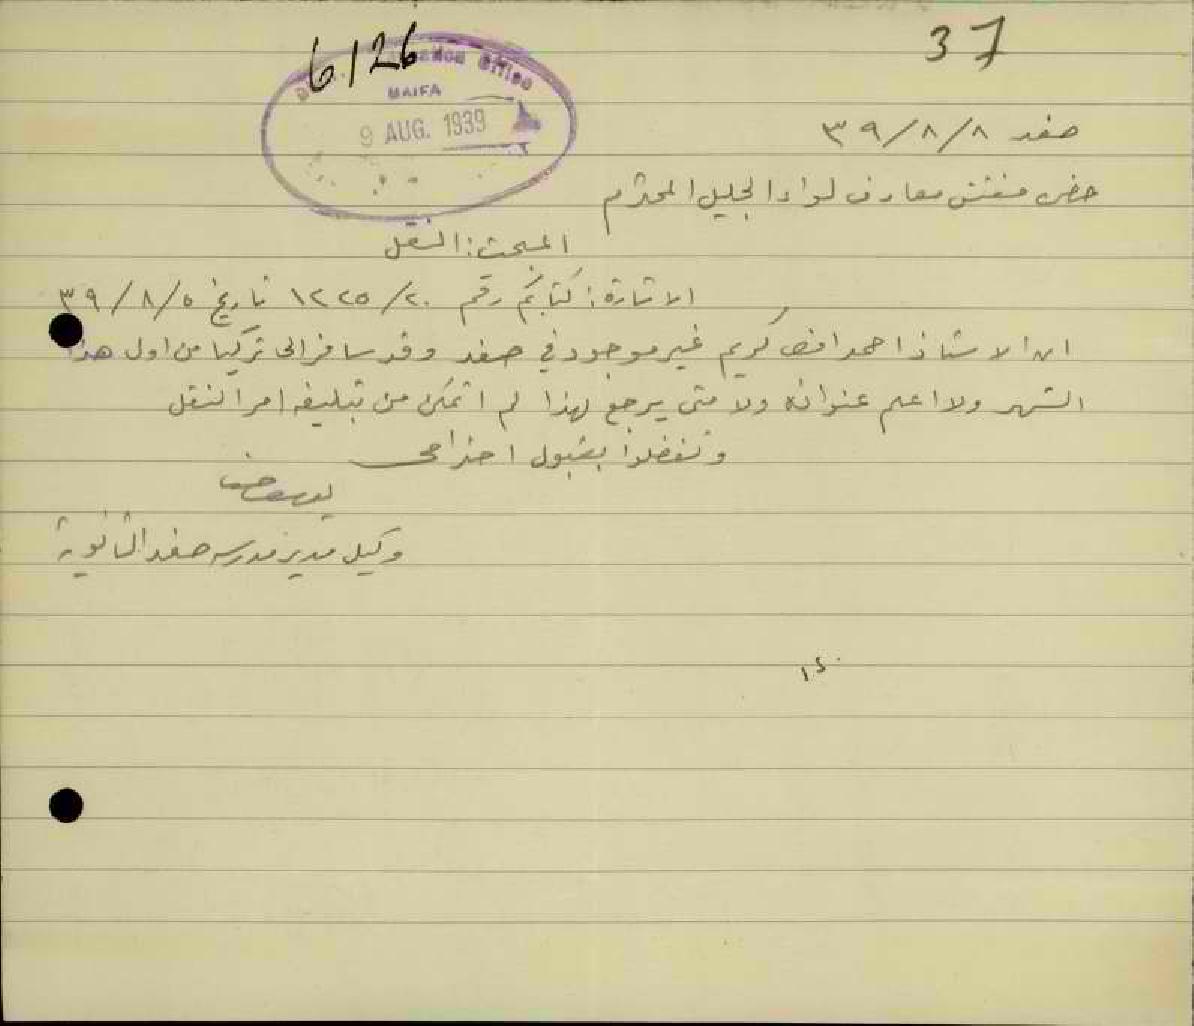 37
6126
Office
HAIFA
9 AUG. 1939
صفد ٣٩/٨/٨
حضرة مفتش معارف لواء الجليل المحترم
المبحث: النقل
الاشارة: كتابكم رقم ١٢٢٥/٢٠ تاريخ ٣٩/٨/٥
ان الاستاذ احمد افندي كريم غير موجود في صفد وقد سافر الى تركيا من اول هذا
الشهر ولا اعلم عنوانه ولا متى يرجع لهذا لم اتمكن من تبليغه امر النقل
وتفضلوا بقبول احترامي
وكيل مدير مدرسة صفد الثانوية